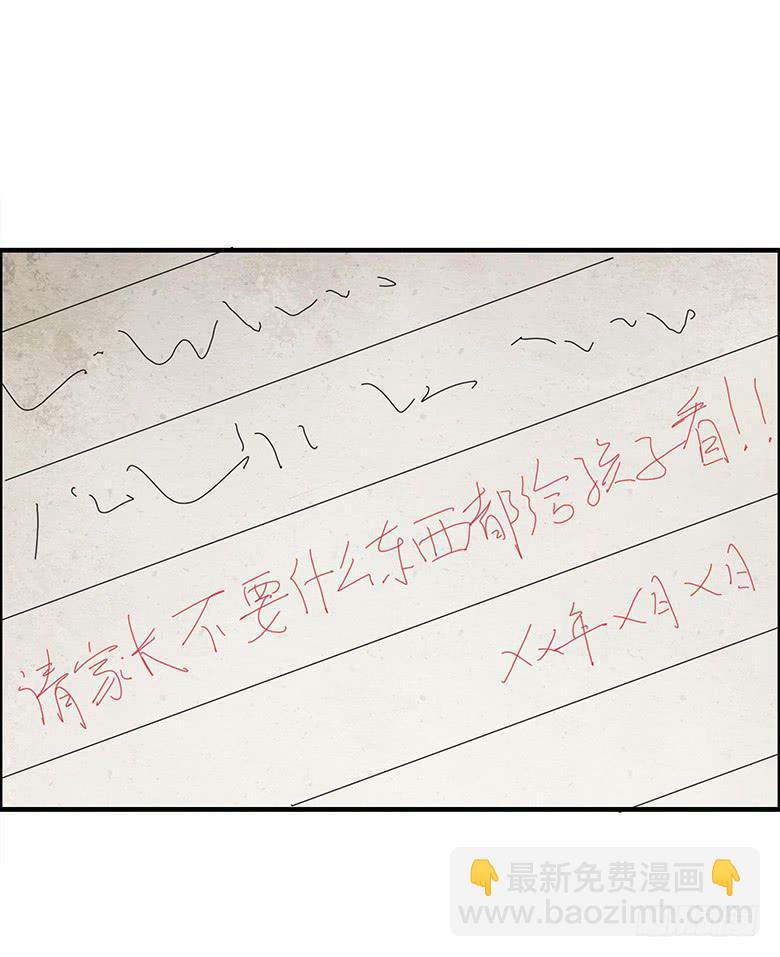 请家长不要什么东西都给孩子看!!
XX年X月X日
👇最新免费漫画👇
www.baozimh.com